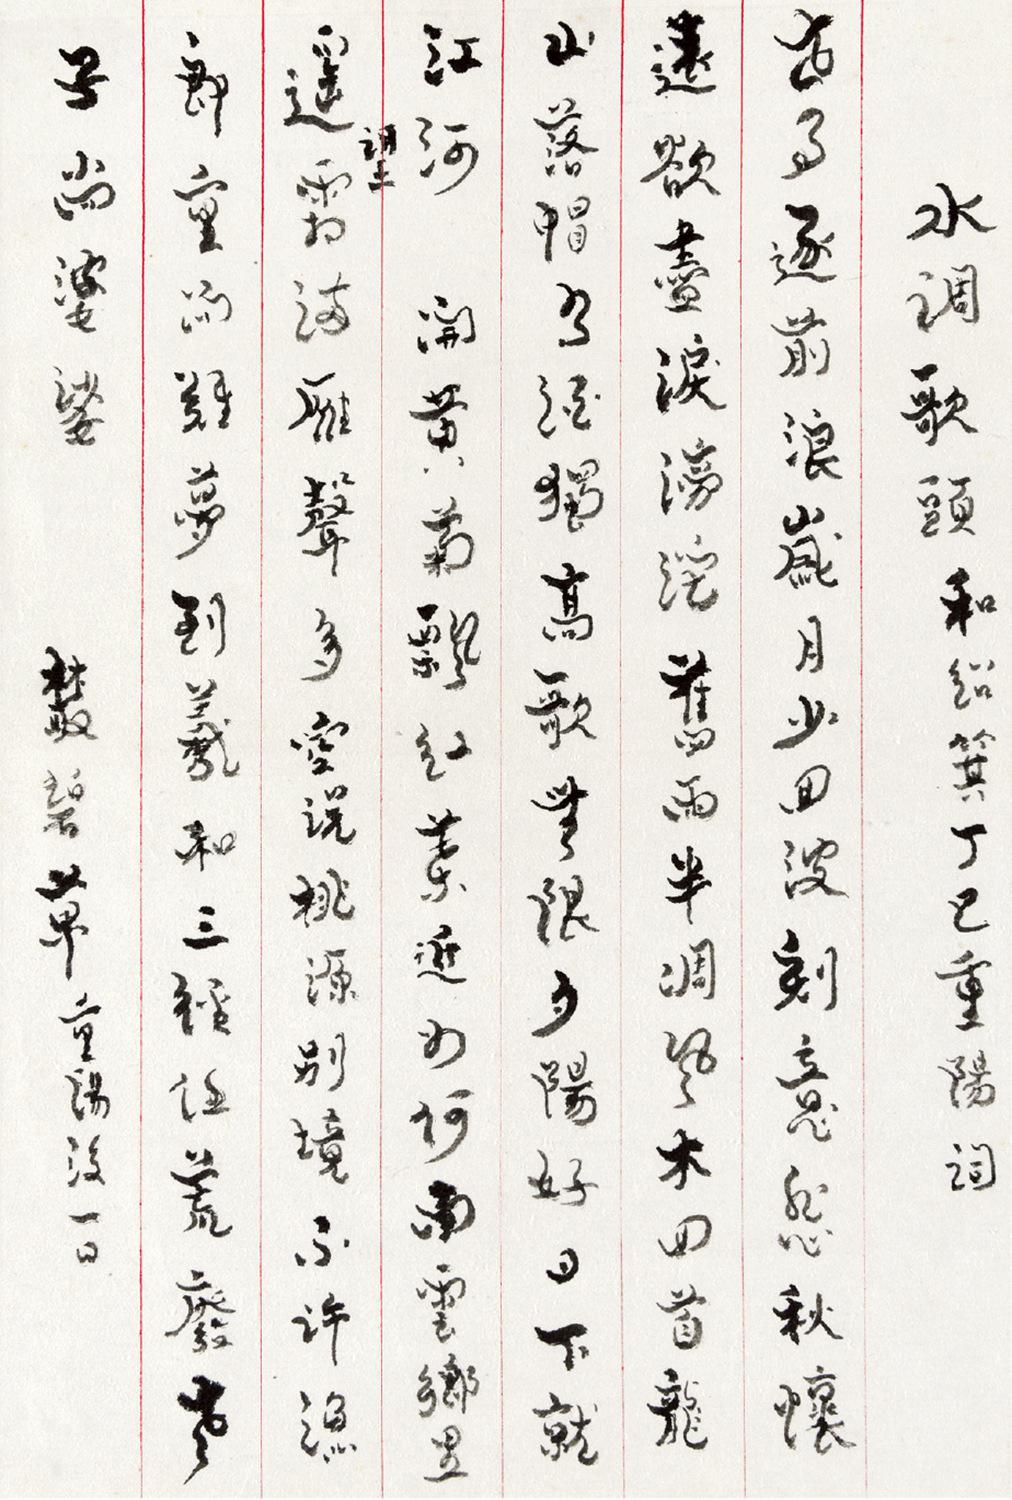 水調歌頭 和紹箕丁巳重陽詞
逐前浪歲月少回波刻意秋懷
遠欲盡淚滂沱舊雨半凋風木回首龍
山落帽有酒獨高歌無限夕陽好日下就
江河 開黃菊飄紅葉近如何南雲鄉里
遙望霜滿雁聲多空說桃源別境不許漁
郎重問難夢到羲和三徑任荒廢老
子尚婆娑 叢碧草 重陽後一日